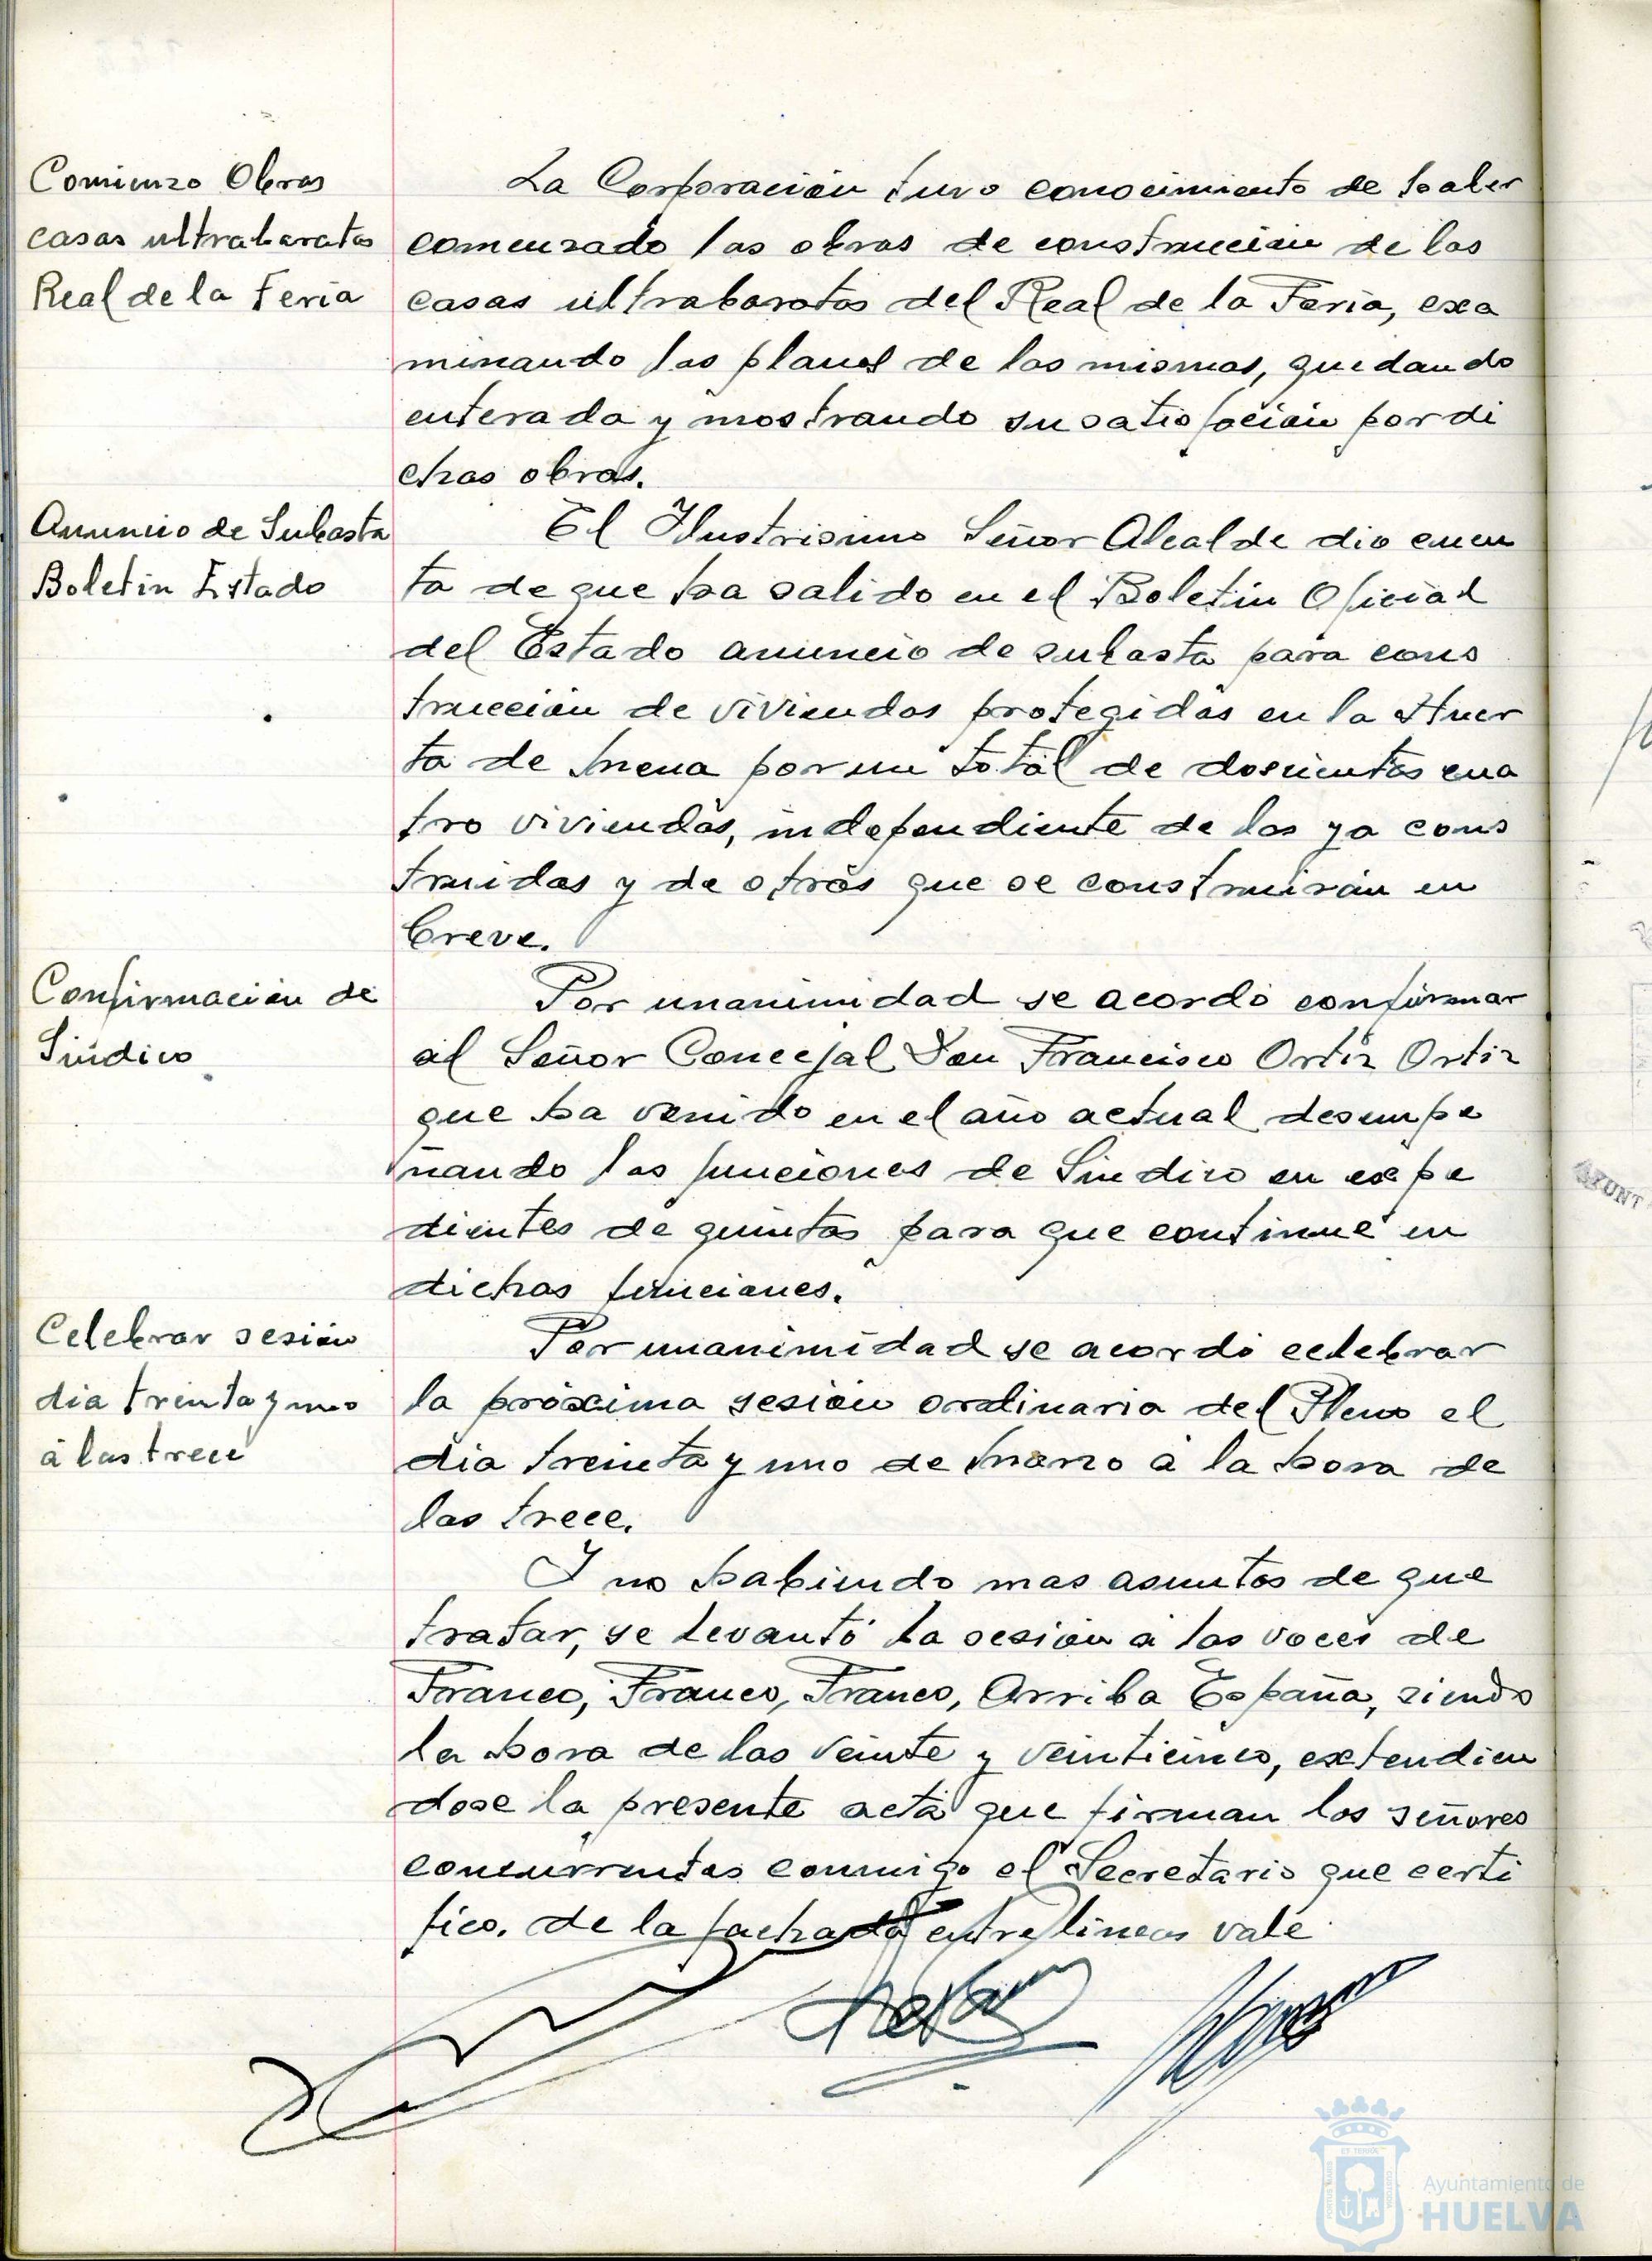 Comienzo Obras
casas ultrabaratas
Real de la Feria
La Corporación tuvo conocimiento de haber
comenzado las obras de construcción de las
casas ultrabaratas del Real de la Feria, exa
minando los planos de las mismas, quedando
enterada y mostrando su satisfación por di
chas obras.
Anuncio de Subasta
Boletin Estado
El Ilustrisimo Señor Alcalde dio cuen
ta de que ha salido en el Boletin Oficial
del Estado anuncio de subasta para cons
trucción de viviendas protegidas en la Huer
ta de Mena por un total de doscientas cua
tro viviendas, independiente de las ya cons
truidas y de otras que se construirán en
breve.
Confirmación de
Sindico
Por unanimidad se acordó confirmar
al Señor Concejal Don Francisco Ortiz Ortiz
que ha venido en el año actual desempe
ñando las funciones de Sindico en expe
dientes de quintas para que continue en
dichas funciones.
Celebrar sesión
dia treinta y uno
á las trece
Por unanimidad se acordó celebrar
la próxima sesión ordinaria del Pleno el
dia treinta y uno de Marzo á la hora de
las trece.
Y no habiendo mas asuntos de que
tratar, se levantó la sesión á las voces de
Franco, Franco, Franco, Arriba España, siendo
la hora de las veinte y veinticinco, extendien
dose la presente acta que firman los señores
concurrentes conmigo el Secretario que certi
fico. de la fachada entrelineas vale
AYUNT
Ayuntamiento de
HUELVA